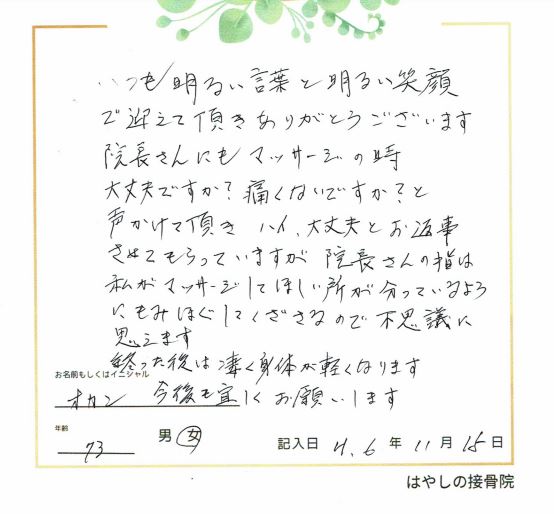 いつも明るい言葉と明るい笑顔
で迎えて頂きありがとうございます
院長さんにもマッサージの時
大丈夫ですか？痛くないですか？と
声かけて頂き ハイ、大丈夫とお返事
させてもらっていますが 院長さんの指は
私がマッサージしてほしい所が分っているよう
にもみほぐしてくださるので不思議に
思えます
終った後は凄く身体が軽くなります
お名前もしくはイニシャル
オカン 今後も宜しくお願いします
年齢
73 男 女 記入日 H.6 年 11 月 15 日
はやしの接骨院